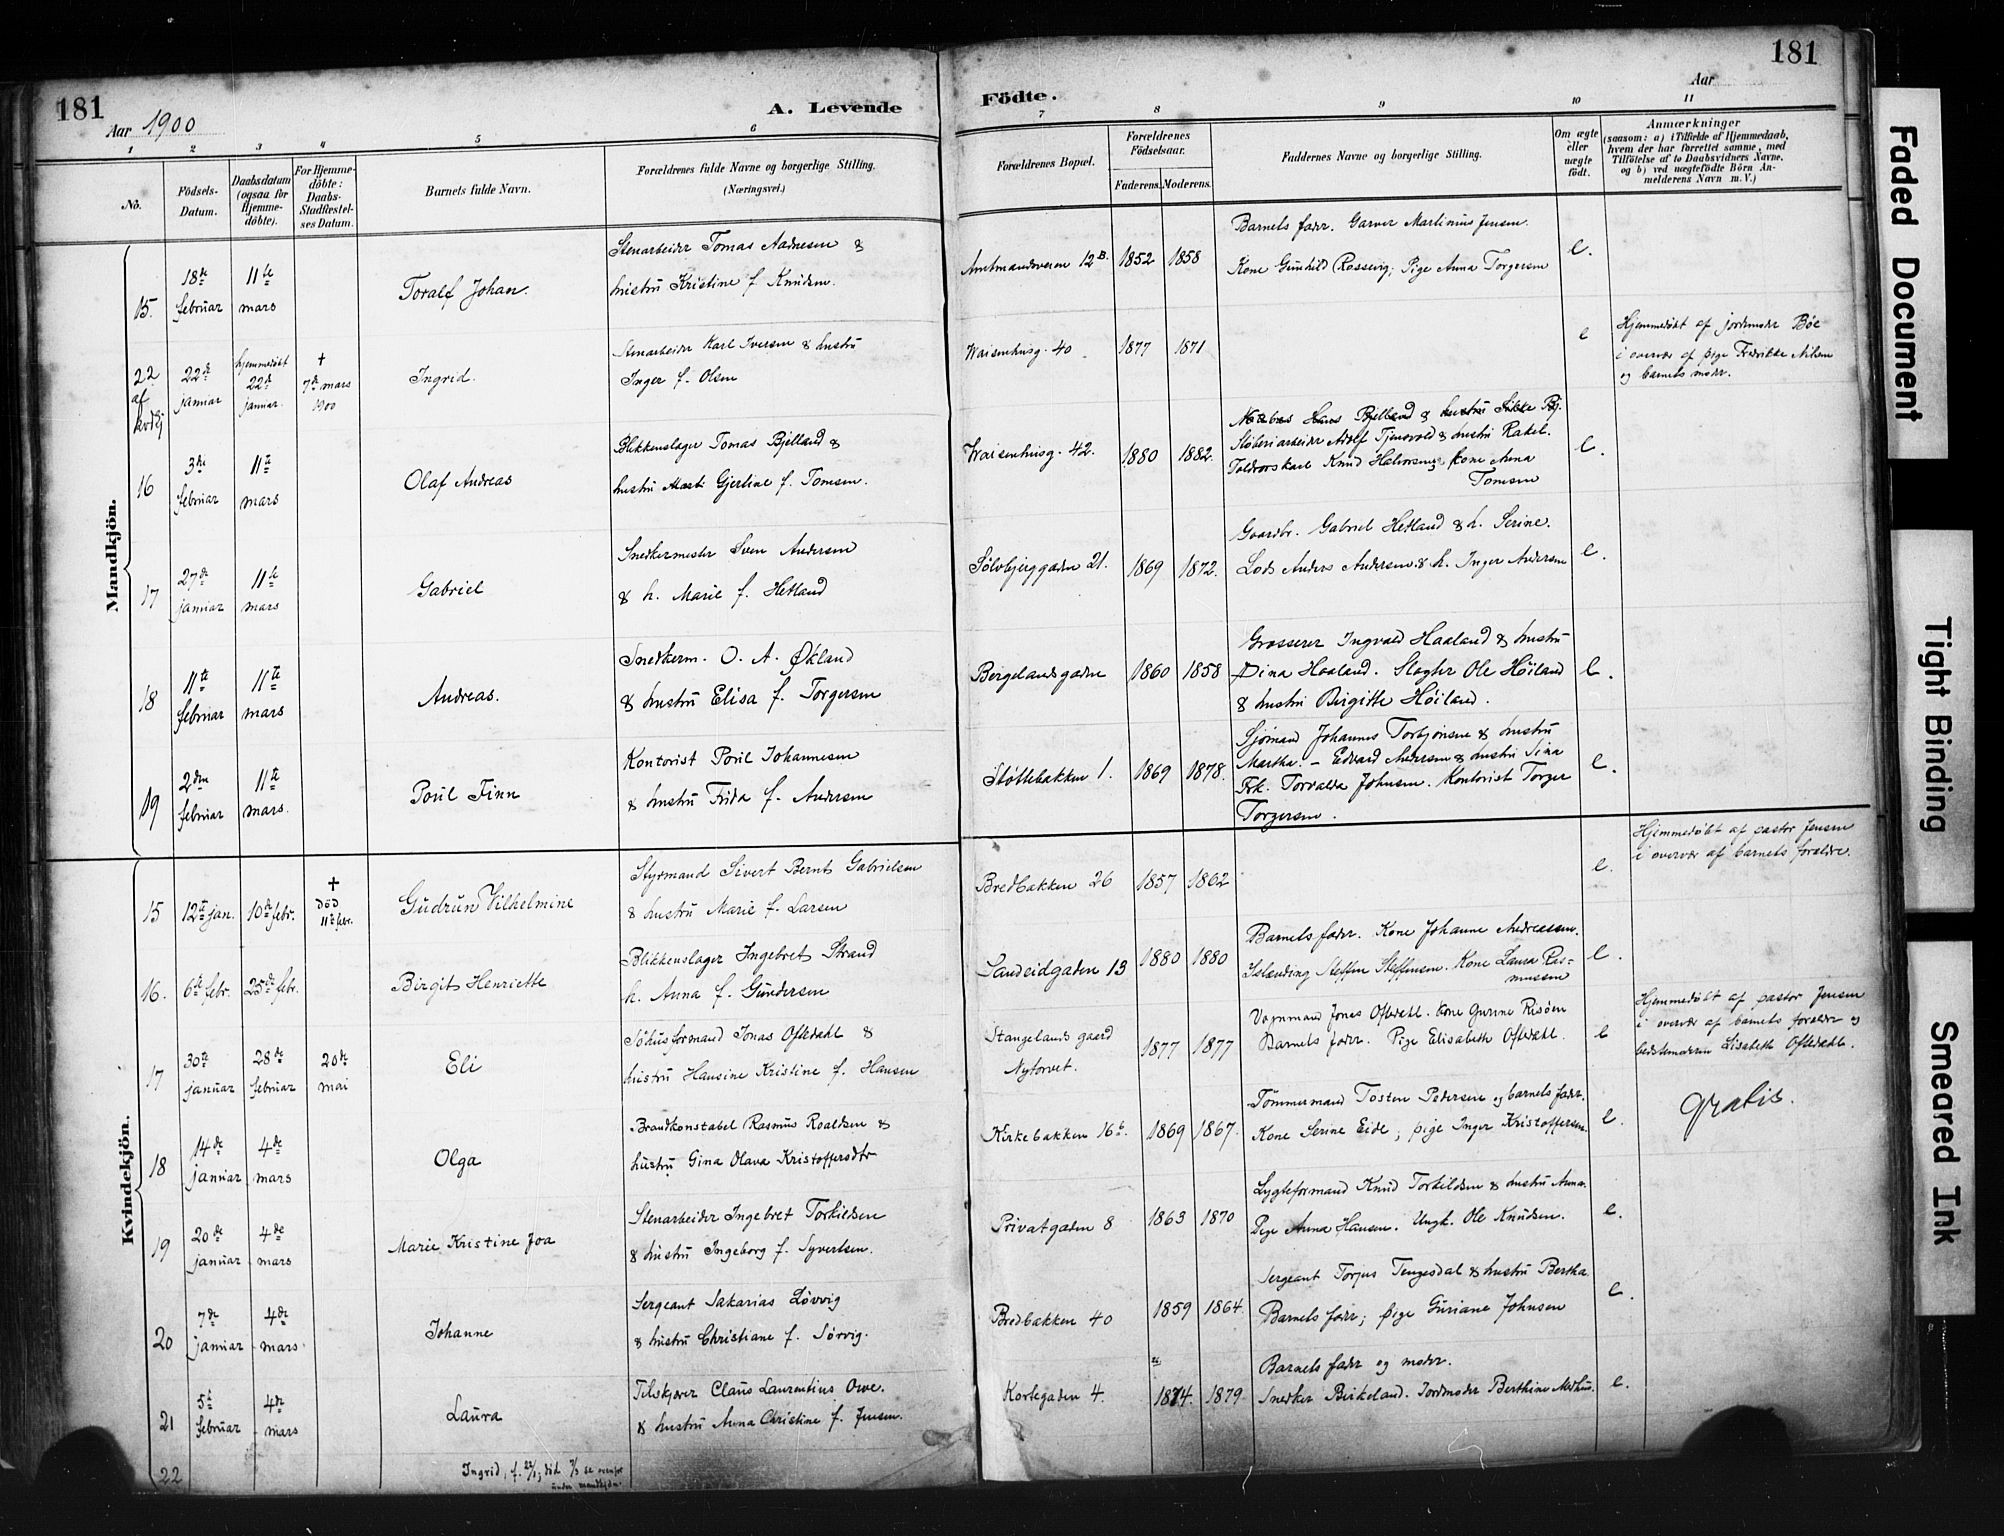 181
Aar 1900
A. Levende
Födte.
Aar
181
1 2 3 4 5 6 7 8 9 10 11
No.
Födsels-Datum.
Daabsdatum (ogsaa for Hjemme-döbte).
For Hjemme-döbte: Daabs-Stadfæstel-ses Datum.
Barnets fulde Navn.
Forældrenes fulde Navne og borgerlige Stilling. (Næringsvei.)
Forældrenes Bopæl.
Forældrenes Födselsaar.
Faderens. Moderens.
Faddernes Navne og borgerlige Stilling.
Om ægte eller uægte födt.
Anmærkninger
(saasom: a) i Tilfælde af Hjemmedaab, hvem der har forrettet samme, med Tilföielse af to Daabsvidners Navne, og b) ved uægtefödte Börn An-melderens Navn m. V.)
Mandkjön.
15. 18de februar 11te mars Toralf Johan.
Stenarbeider Tomas Aadnesen &
hustru Kristine f. Knudsen.
Amtmandsveien 12 B. 1852 1858
Barnets fader. Garver Martinius Jensen.
Kone Gunhild Rossevig; Pige Anna Torgersen
e.
22 af kvdkj 22de januar hjemmedöbt 22de januar. † 7de mars 1900 Ingrid.
Stenarbeider Karl Iversen & hustru
Inger f. Olsen
Waisenhusg. 40 1877 1871
e
Hjemmedöbt af jordemoder Böe
i overvær af pige Fredrikke Nilsen
og barnets moder.
16 3de februar 11te mars Olaf Andreas
Blikkenslager Tomas Bjelland &
hustru Marti Gjertine f. Tomsen.
Waisenhusg. 42. 1880 1882.
Hans Bjelland & hustru Sikke Bj.
Støberiarbeider Adolf Tjensvold & hustru Rakel.
Toldvorskarl Knud Halvorsen; kone Anna
Tomsen
e.
17 27de januar 11te mars Gabriel
Snedkermester Sven Andersen
& h. Marie f. Hetland
Sölvbjerggaden 21. 1869 1872.
Gaardbr. Gabriel Hetland & h. Serine.
Lods Anders Andersen & h. Inger Andersen
e.
18 11te februar 11te mars Andreas.
Snedkerm. O. A. Økland
& hustru Elisa f. Torgersen
Bergelandsgaden 1860 1858
Grosserer Ingvald Haaland & hustru
Dina Haaland. Slagter Ole Höiland
& hustru Birgitte Höiland.
e.
19 2den februar 11te mars. Poul Finn
Kontorist Poul Johannesen
& hustru Frida f. Andersen
Støttebakken 1. 1869 1878.
Sjömand Johannes Torbjönsen & hustru
Martha. — Edvard Andersen & hustru Sina
Frk. Torvalda Johnsen. Kontorist Torger
Torgersen.
e.
Kvindekjön.
15 12te jan. 10de febr. † död 11te febr. Gudrun Vilhelmine
Styrmand Sivert Bernt Gabrielsen
& hustru Marie f. Larsen
Bredbakken 26 1857 1862
e.
Hjemmedöbt af pastor Jensen
i overvær af barnets forældre.
16. 6te febr. 25de febr. Birgit Henriette
Blikkenslager Ingebret Strand
h. Anna f. Gundersen
Sandeidgaden 13 1880 1880
Barnets fader. Kone Johanne Andreassen.
Islænding Steffen Steffensen. Kone Laura Ras-
mussen
e.
17 30te januar 28de februar 20de mai Eli
Söhusformand Jonas Oftedahl &
hustru Hansine Kristine f. Hansen
Stangelands gaard
Nytorvet. 1877 1877
Vognmand Jonas Oftedahl. Kone Gurine Risöen
Barnets fader. Pige Elisabeth Oftedahl.
e
Hjemmedöbt af pastor Jensen
i overvær af barnets forældre og
bedstemoderen Lisabeth Oftedahl.
18 14de januar 4de mars Olga
Brandkonstabel Rasmus Roaldsen &
hustru Gina Olava Kristoffersdtr
Kirkebakken 16 b. 1869 1867.
Tömmermand Tosten Pedersen og barnets fader.
Kone Serine Eide; pige Inger Kristoffersen.
e.
Gratis.
19 20de januar 4de mars Marie Kristine Joa
Stenarbeider Ingebret Torkildsen
& hustru Ingeborg f. Syvertsen.
Privatgaden 8 1863 1870
Lygteformand Knud Torkildsen & hustru Anna.
Pige Anna Hansen. Ungk. Ole Knudsen.
e.
20 7de januar 4de mars. Johanne
Sergeant Sakarias Lövvig
& hustru Christiane f. Sörvig.
Bredbakken 40 1859 1864.
Sergeant Torjus Tengesdal & hustru Bertha.
Barnets fader; pige Guriane Johnsen
e.
21 5te februar 4de mars Laura
Tilskjærer Claus Laurentius Owe.
& hustru Anna Christine f. Jensen.
Kortegaden 4. 1874. 1879.
Barnets fader og moder.
Snedker Birkeland. Jordmoder Berthine Medhus.
e.
22 Ingrid, f. 22/1; död 7/3 se ovenfor
under mandkjön.
Faded Document
Tight Binding
Smeared Ink